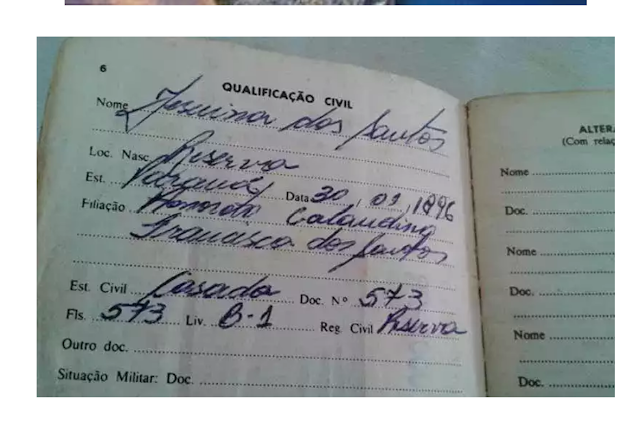 6
QUALIFICAÇÃO CIVIL
Nome Jesuina dos Santos
Loc. Nasc. Riserva
Est. Paraná Data 30, 01, 1896
Filiação Honorato Calaudino
Francisca dos Santos
Est. Civil Casada Doc. Nº 573
Fls. 573 Liv. B-1 Reg. Civil Riserva
Outro doc.
Situação Militar: Doc.
ALTER
(Com relaç
Nome
Doc.
Nome
Doc.
Nome
Doc.